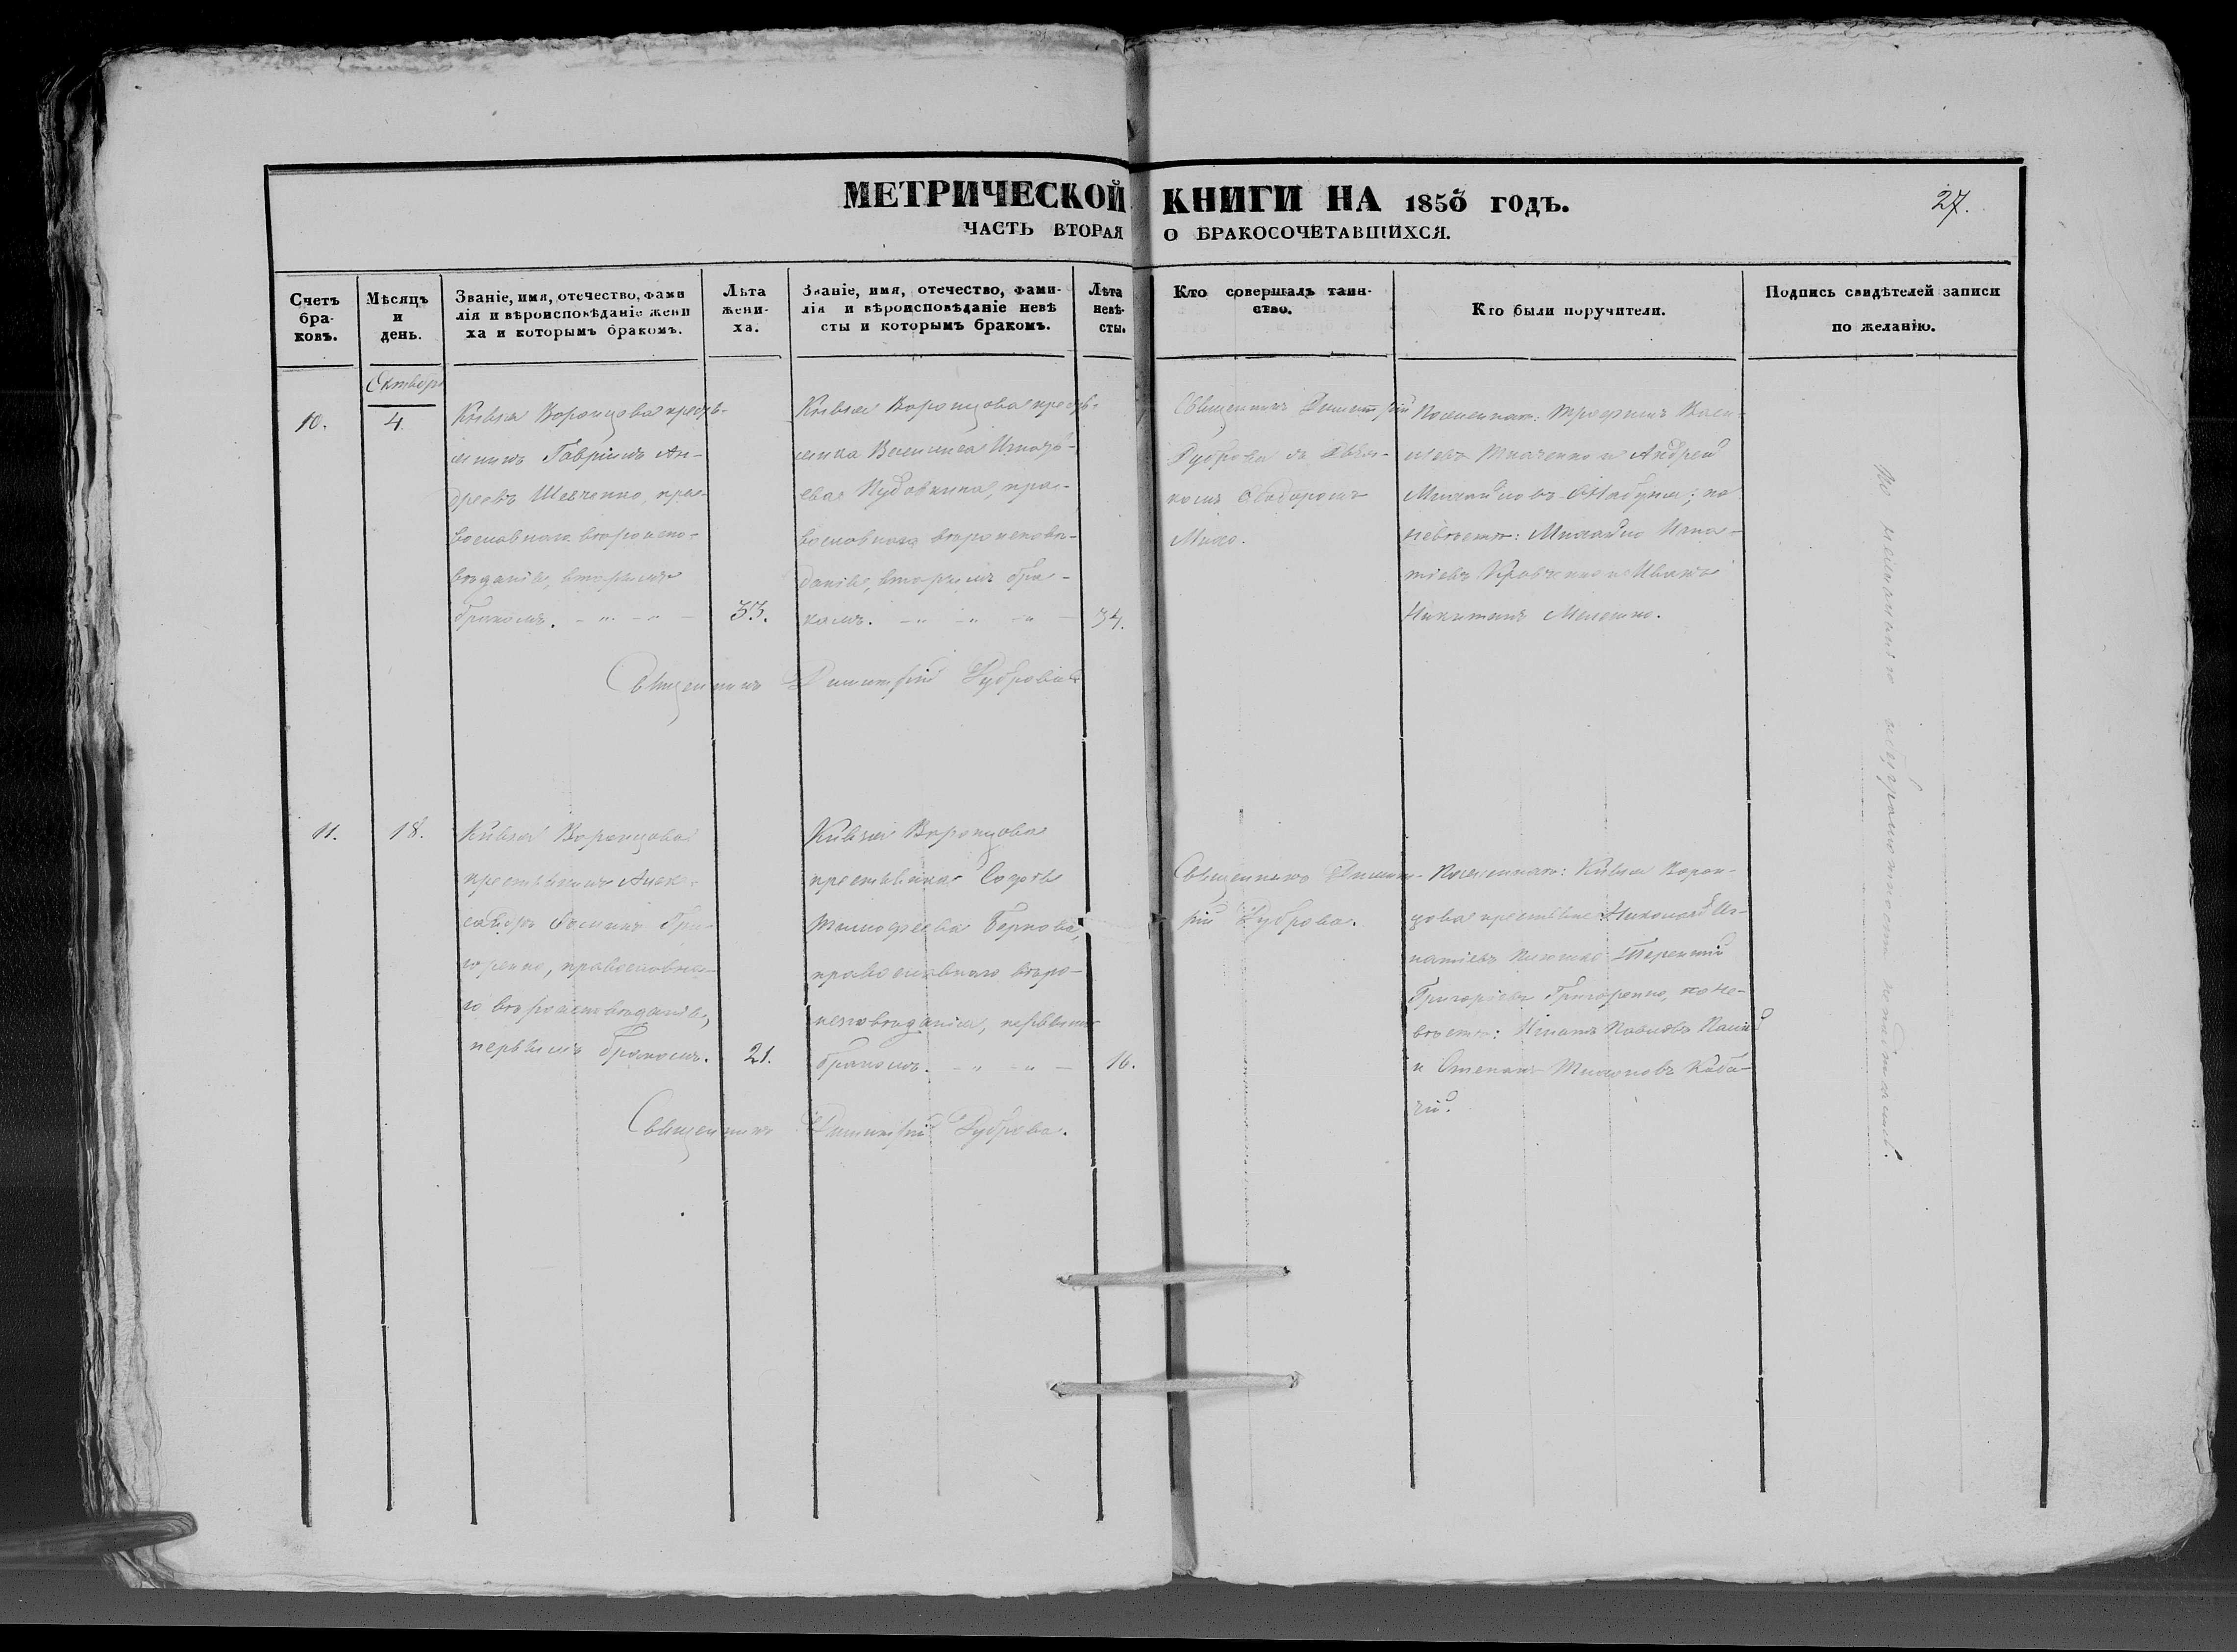 МЕТРИЧЕСКОЙ КНИГИ НА 1853 ГОДЪ.
27.
ЧАСТЬ ВТОРАЯ О БРАКОСОЧЕТАВШИХСЯ.
Счетъ
бра-
ковъ.
Мѣсяцъ
и
день.
Званіе, имя, отечество, фами
лія и вѣроисповѣданіе жени
ха и которымъ бракомъ.
Лѣта
жени-
ха.
Званіе, имя, отечество, фами-
лія и вѣроисповѣданіе невѣ
сты и которымъ бракомъ.
Лѣта
невѣ-
сты.
Кто совершалъ таин-
ство.
Кто были поручители.
Подпись свидѣтелей записи
по желанію.
Октября
10.
4.
Князя Воронцова кресть-
янинъ Гавріилъ Ан-
дреевъ Шевченко, пра-
вославнаго вѣроиспо-
вѣданія, вторымъ
бракомъ.
33.
Князя Воронцова кресть-
янка Василиса Игнать-
ева, пра-
вославнаго вѣроисповѣ-
данія, вторымъ бра-
комъ.
34.
Священникъ Димитрій
Дуброва съ
Ѳеодоромъ
По женихѣ: Трофимъ Васи-
льевъ Ткаченко и Андрей
Михайловъ; по
невѣстѣ: Михайло Игна-
тіевъ Кравченко и Иванъ
Никитинъ
Священникъ Димитрій Дуброва
11.
18.
Князя Воронцова
крестьянинъ Алек-
сандръ Фоминъ Гри-
горенко, православна-
го вѣроисповѣданія,
первымъ бракомъ.
21.
Князя Воронцова
крестьянка
Тимофеева
православнаго вѣро-
исповѣданія, первымъ
бракомъ.
16.
Священникъ Димит-
рій Дуброва.
По женихѣ: Князя Ворон-
цова крестьяне Николай Иг-
натіевъ Терентій
Григоріевъ Григоренко, по не-
вѣстѣ: Игнатъ Павловъ
и Степанъ Тихоновъ
Священникъ Димитрій Дуброва.